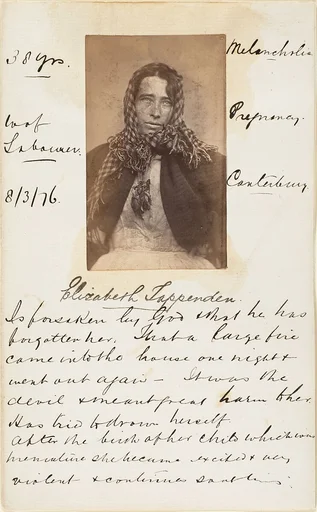 38 yrs.
Melancholia
w of
Labourer.
Pregnancy.
8/3/76.
Canterbury.
Elizabeth Tappenden.
Is forsaken by God & that he has
forgotten her. That a large fire
came into the house one night &
went out again – It was the
devil & meant great harm to her.
Has tried to drown herself
After the birth of her child which was
premature she became excited & very
violent & continues so at times.